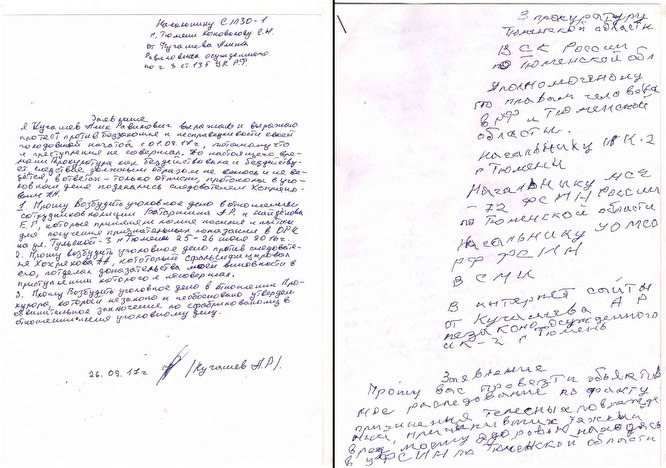 Начальнику СИЗО-1
г. Тюмени
от Кучашева
Равиковича осужденного
по ч 3 ст 135 УК Р.Ф.
Заявление
Я Кучашев Равикович выражаю и выражаю
протест против беззакония и несправедливости своей
голодовкой начатой с 01.09.17г, потому что
я преступления не совершал. До настоящего вре-
мени прокуратура как бездействовала
следствие должным образом не велось и не ве-
дется, в ответах - только отписки, протоколы в уго-
ловном деле подделались следователем
1. Прошу Возбудить уголовное дело в отношении
сотрудников полиции А.Р. и
Е.Г, которые применяли ко мне насилие и пытки
для получения признательных показаний в ОРЧ
на ул. Тульской-3 г Тюмени 25-26
2. Прошу возбудить уголовное дело против следовате-
ля Хохрякова который сфальсифицировал
доказательства моей виновности в
преступлении которого я несовершал.
3. Прошу Возбудить уголовное дело в отношении Про-
курора, который незаконно и необосновано утвердил
обвинительное заключение по сфабрикованому в
отношении меня уголовному делу.
26.09.17г /Кучашев А.Р/.
В прокуратуру
Тюменской области
В СК России
по Тюменской обл
Уполномоченому
по правам человека
в РФ и Тюменской
области.
Начальнику ИК-2
г Тюмени
Начальнику МСЧ
-72 ФСИН России
по Тюменской области
Начальнику
РФ ФСИН
В СМИ
В интернет сайты
от Кучашева А Р
незаконо осужденного
ИК-2 г Тюмень
Заявление
Прошу вас провезти обьектив
ное раследование по факту
причинения телесных поврежде
ний, причинивших тяжкий
вред моему здоровью находясь
в УФСИН по Тюменской области